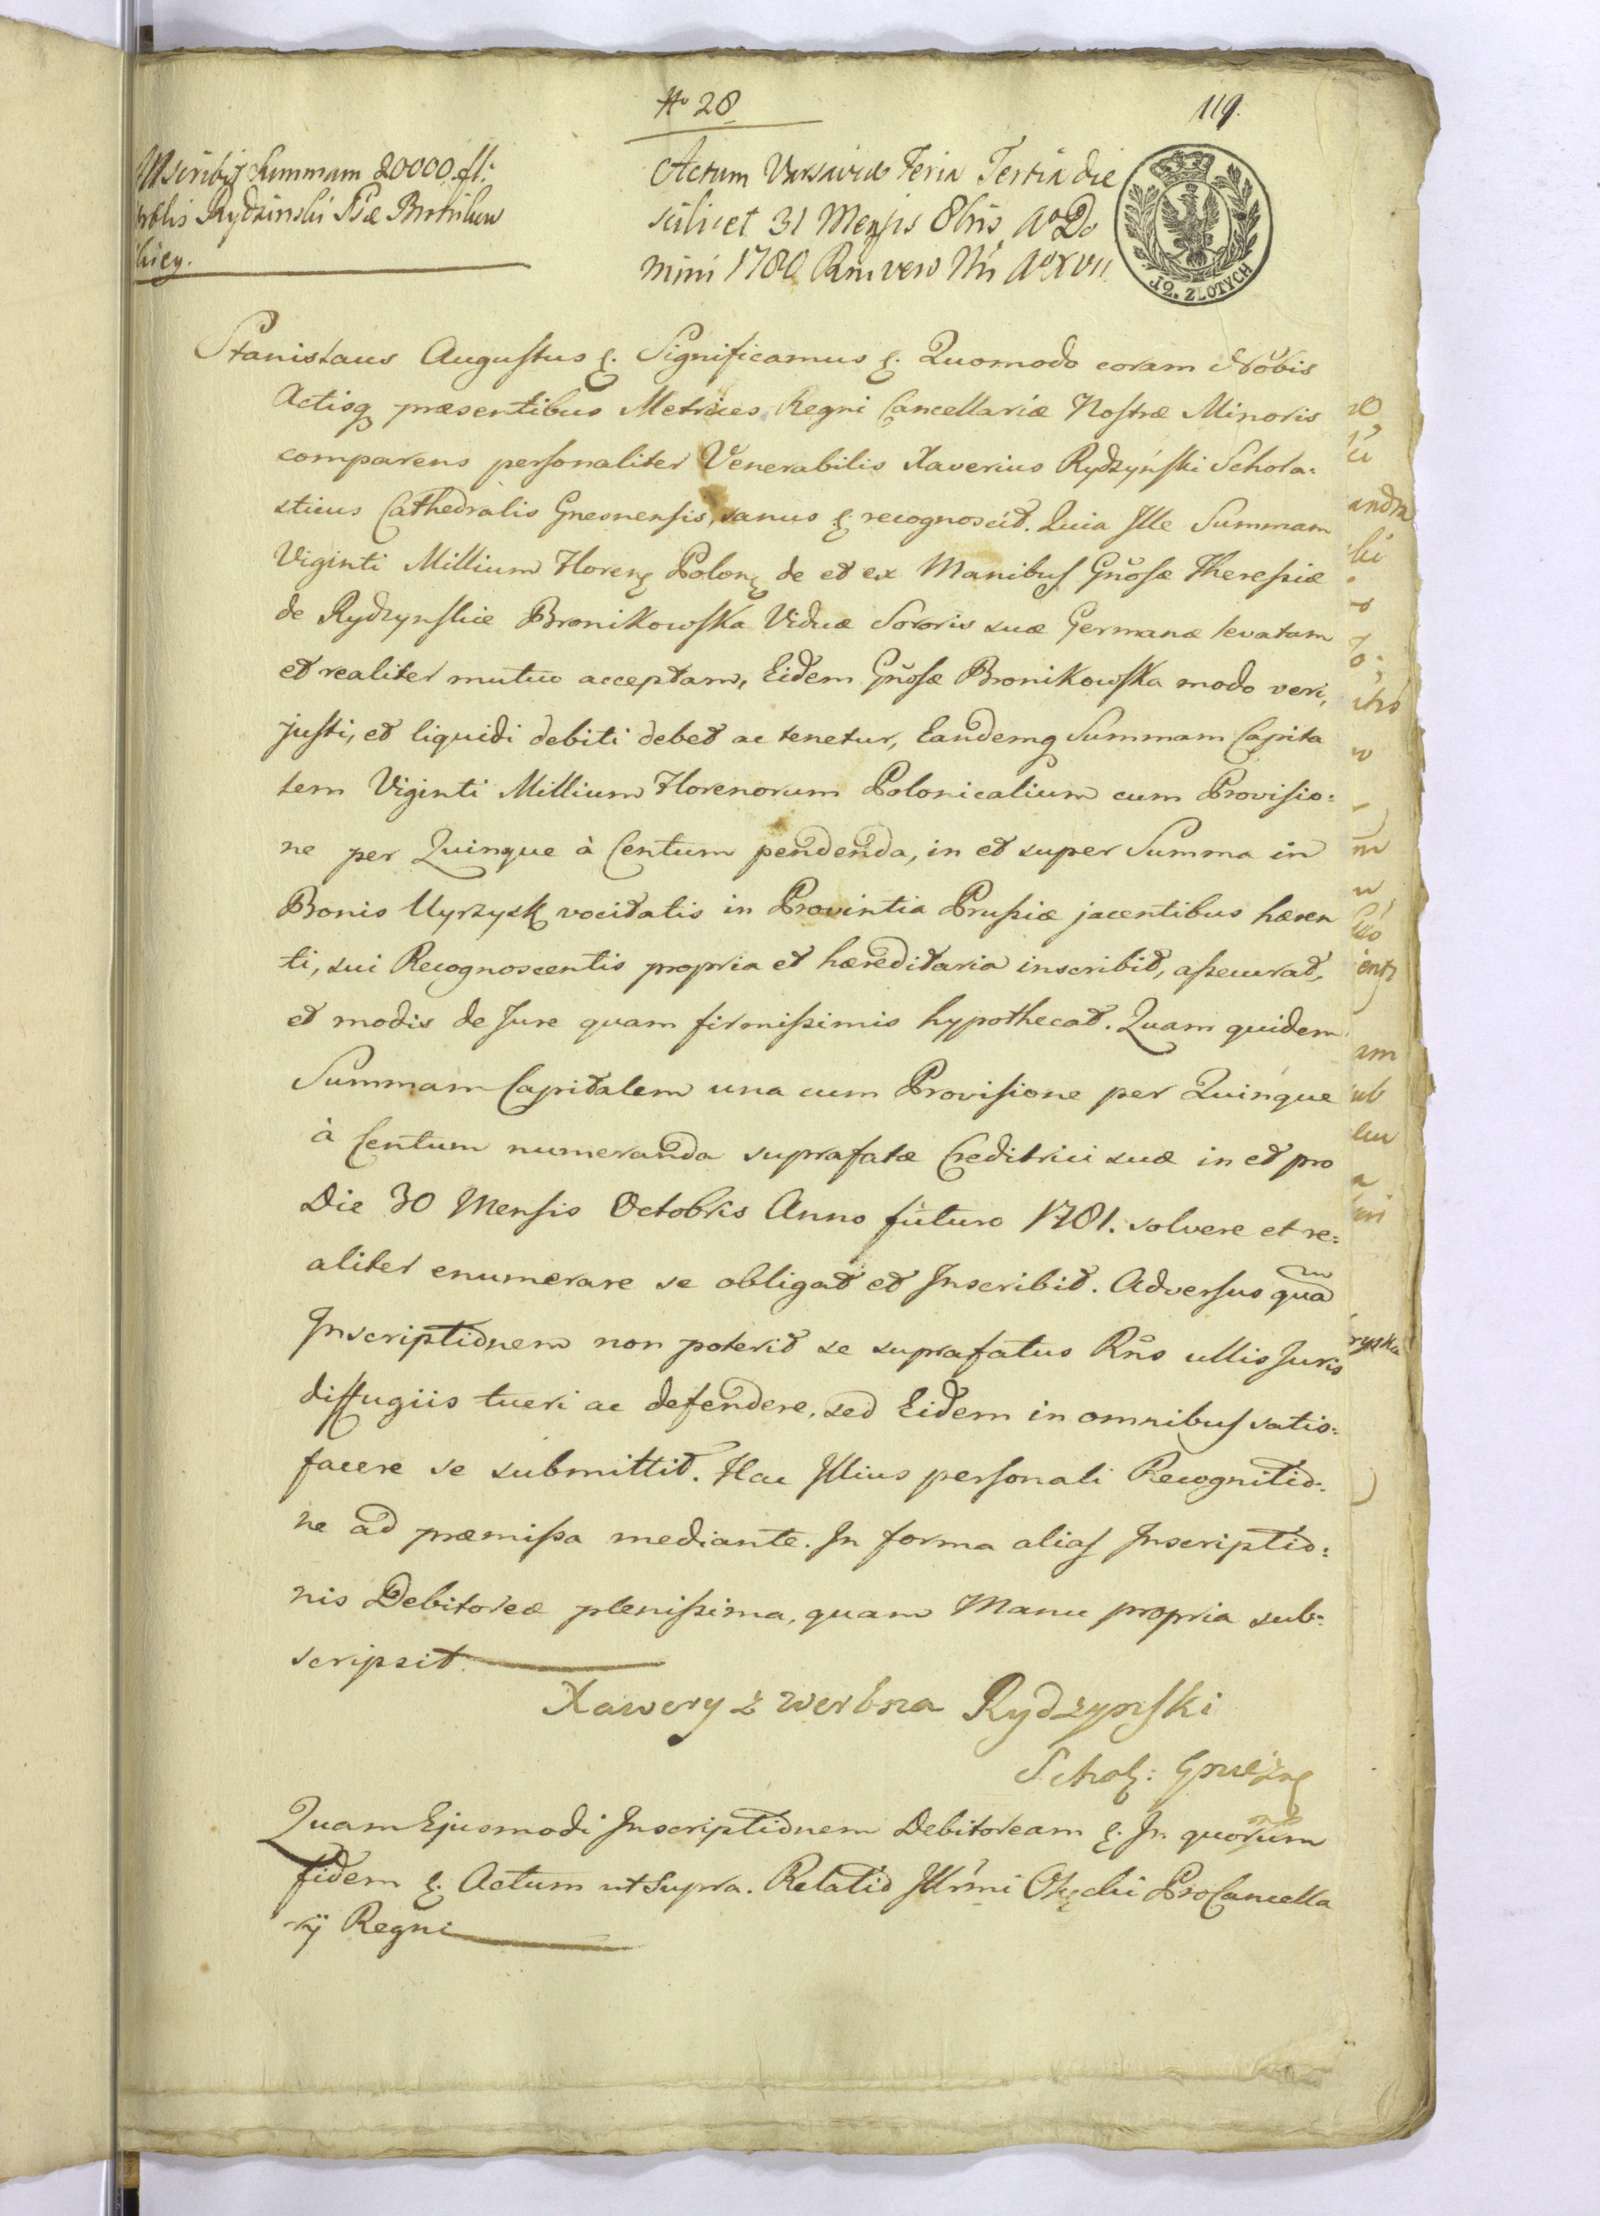 No 28
119.
Inscribit Summam 20000 fl:
Actum Varsaviæ Feria Tertia die
scilicet 31 Mensis 8bris Ao Do
mini 1780 Rni vero Nri Ao XVII
12. ZŁOTYCH
Stanislaus Augustus &. Significamus &. Quomodo coram Nobis
Actisq præsentibus Metrices Regni Cancellariæ Nostræ Minoris
comparens personaliter Venerabilis Xaverius Rydzyński Schola=
sticus Cathedralis Gnesnensis, sanus &. recognoscit. Quia Ille Summam
Viginti Millium Floren Polon de et ex Manibus Gnosæ Theresiæ
de Rydzynskie Bronikowska Viduæ Sororis suæ Germanæ levatam
et realiter mutuo acceptam, Eidem Gnosæ Bronikowska modo veri,
justi, et liquidi debiti debet ac tenetur, Eandemq Summam Capita
lem Viginti Millium Florenorum Polonicalium cum Provisio=
ne per Quinque à Centum pendenda, in et super Summa in
Bonis Wyrzysk vocitatis in Provintia Prussiæ jacentibus hæren
ti, sui Recognoscentis propria et hæreditaria inscribit, assecurat,
et modis de Jure quam firmissimis hypothecat. Quam quidem
Summam Capitalem una cum Provisione per Quinque
à Centum numeranda suprafatæ Creditrici suæ in et pro
Die 30 Mensis Octobris Anno futuro 1781. solvere et re=
aliter enumerare se obligat et Inscribit. Adversus quam
Inscriptionem non poterit se suprafatus Rns ullis Juris
diffugiis tueri ac defendere, sed Eidem in omnibus satis=
facere se submittit. Hac Illius personali Recognitio=
ne ad præmissa mediante. In forma alias Inscriptio=
nis Debitoreæ plenissima, quam Manu propria sub=
scripsit.
Xawery z Werbna Rydzynski
Schol: Gnieźn
Quam Ejusmodi Inscriptionem Debitoream &. In quorum
fidem &. Actum ut Supra. Relatio Illrmi Okęcki ProCancella
rij Regni